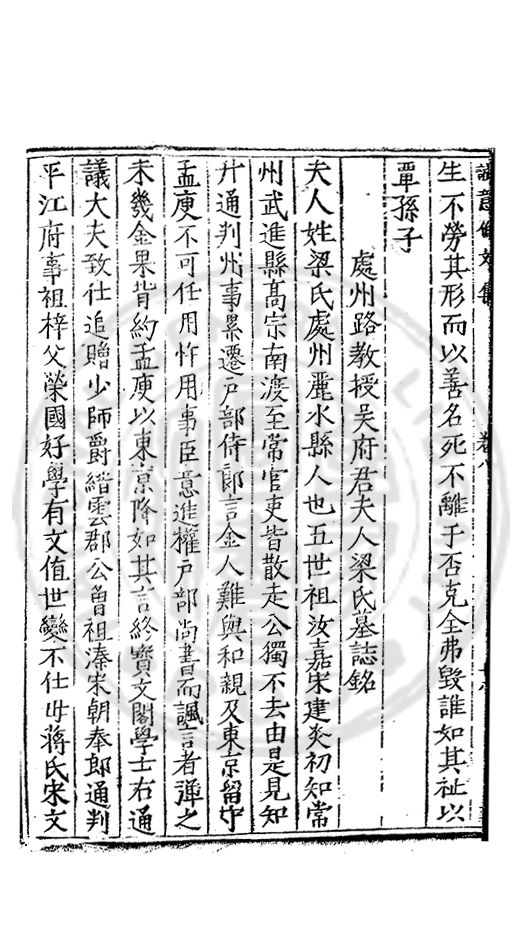 誠意伯文集 卷八
生不勞其形而以善名死不離于否克全弗毀誰如其祉以
覃孫子
處州路教授吳府君夫人梁氏墓誌銘
夫人姓梁氏處州麗水縣人也五世祖汝嘉宋建炎初知常
州武進縣高宗南渡至常官吏皆散走公獨不去由是見知
廾通判州事累遷戸部侍郎言金人難與和親及東京留守
孟庾不可任用忤用事臣意進權戸部尚書而諷言者彈之
未幾金果背約孟庾以東京降如其言終寳文閣學士右通
議大夫致仕追贈少師爵縉雲郡公曾祖溱宋朝奉郎通判
平江府事祖梓父榮國好學有文值世變不仕母蔣氏宋文